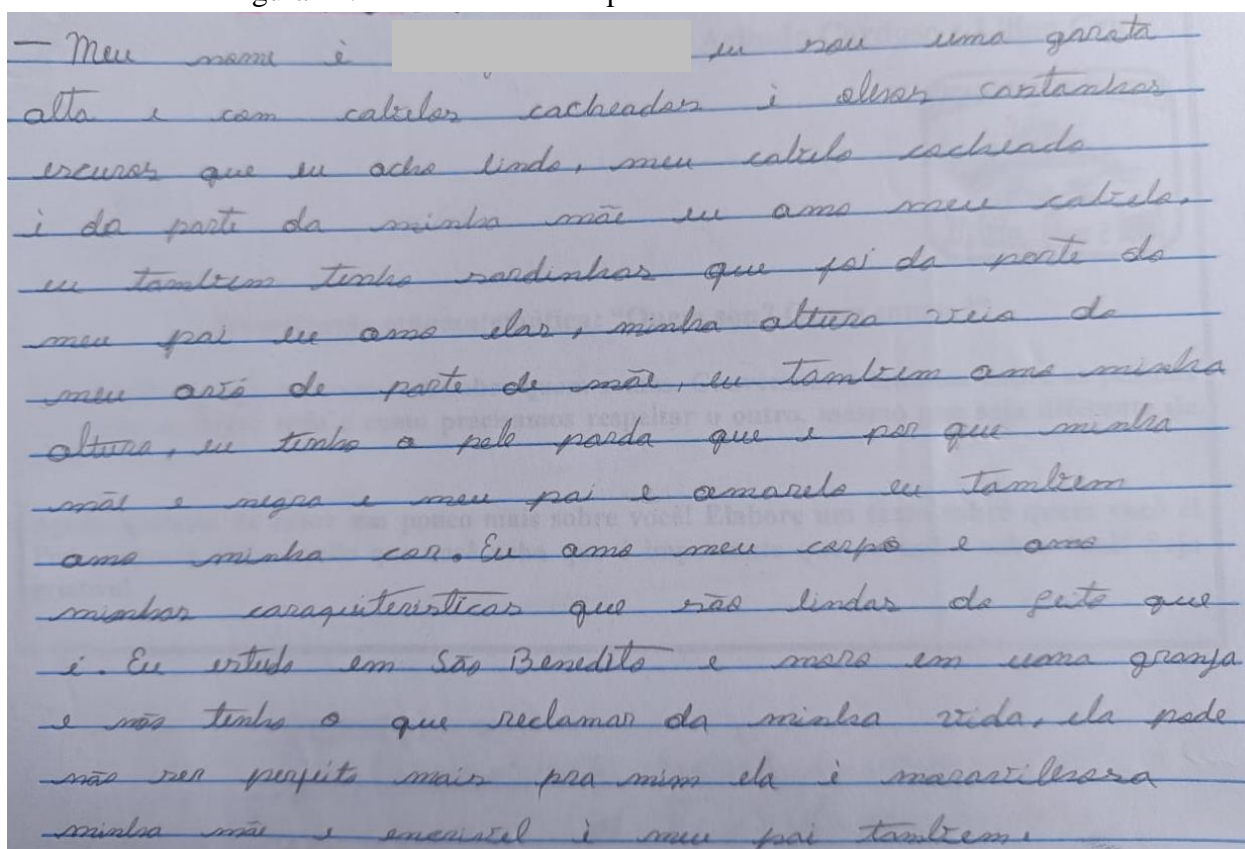 — Meu nome è eu sou uma garota
alta e com cabelos cacheados i olhos castanhos
escuros que eu acho lindo, meu cabelo cacheado
é da parte da minha mãe eu amo meu cabelo.
eu tambem tenho sardinhas que foi da parte do
meu pai eu amo elas, minha altura veio do
meu avó de parte de mãe, eu tambem amo minha
altura, eu tenho a pele parda que e por que minha
mãe e negra e meu pai e amarelo eu tambem
amo minha cor. Eu amo meu corpo e amo
minhas caraquiteristicas que são lindas do jeito que
é. Eu estudo em São Benedito e moro em uma granja
e não tenho o que reclamar da minha vida, ela pode
não ser perfeita mais pra mim ela è maravilhosa
minha mãe e encrivel i meu pai tambem.